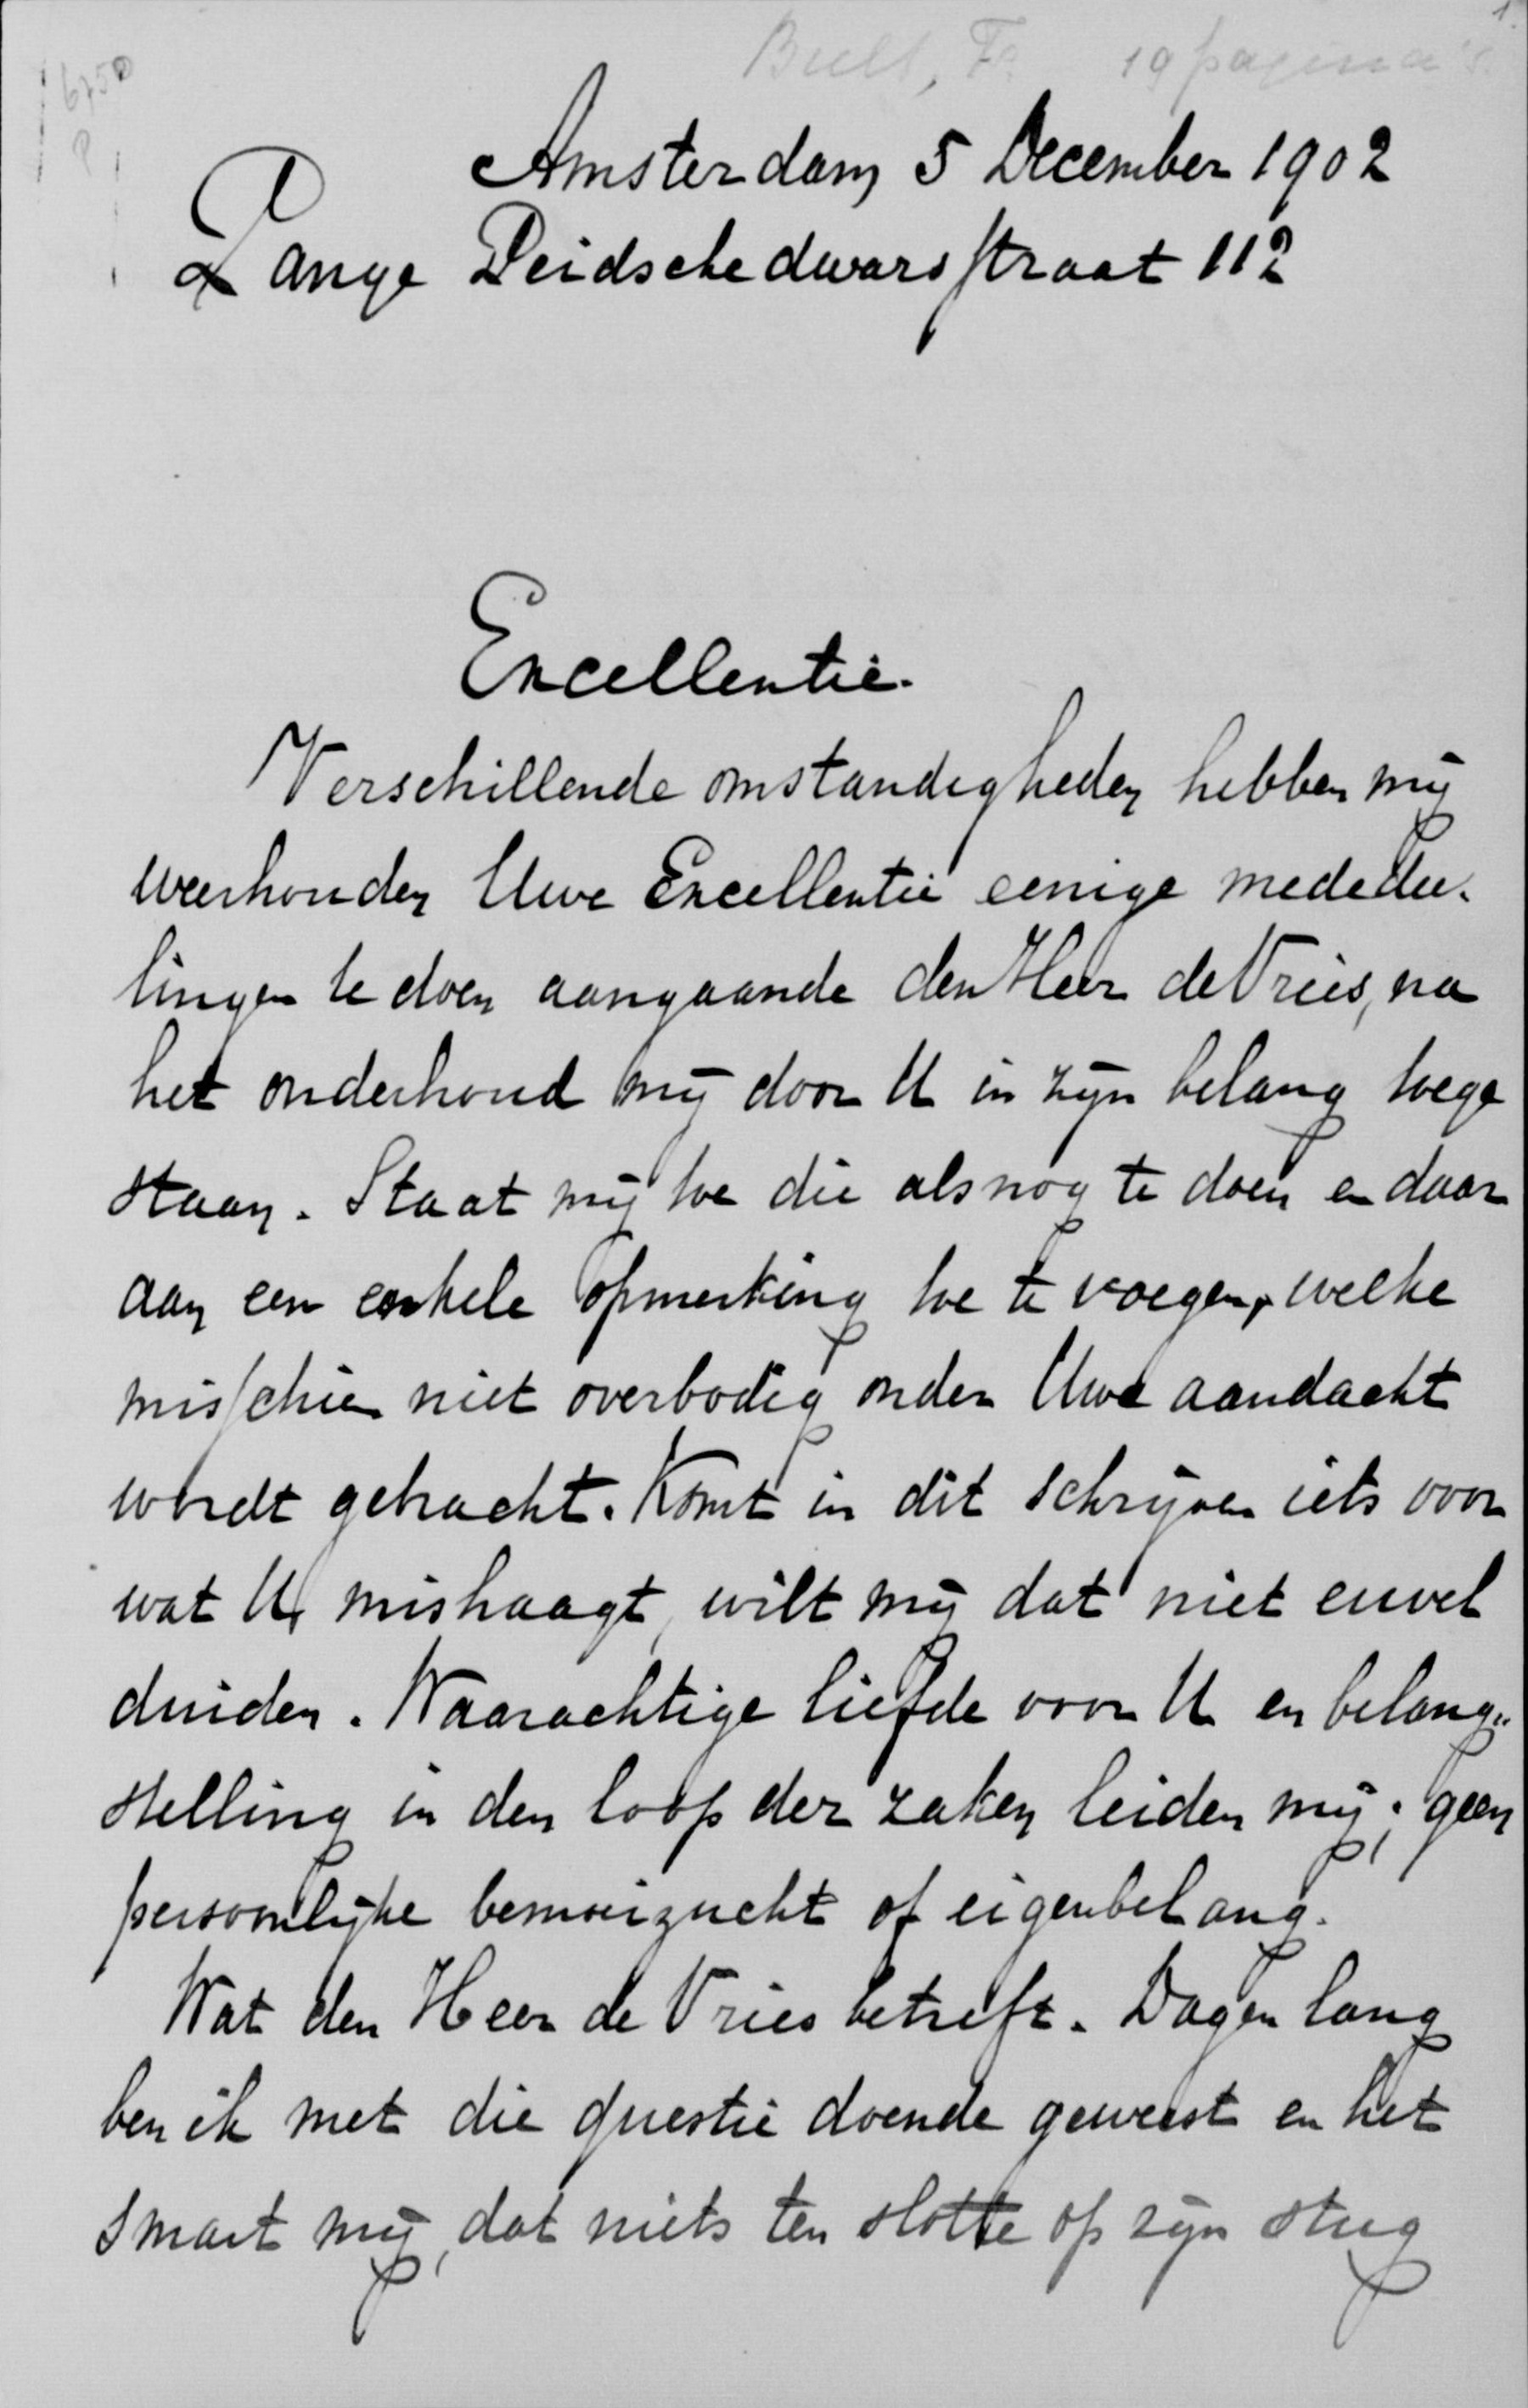 19 pagina's.
1.
6750
Amsterdam 5 December 1902
Lange Leidschedwarsstraat 112
Excellentie.
Verschillende omstandigheden hebben mij
weerhouden Uwe Excellentie eenige mededee-
lingen te doen aangaande den Heer de Vries, na
het onderhoud mij door U in zijn belang toege
staan. Staat mij toe die alsnog te doen en daar
aan een enkele opmerking toe te voegen, welke
misschien niet overbodig onder Uwe aandacht
wordt gebracht. Komt in dit schrijven iets voor
wat U mishaagt, wilt mij dat niet euvel
duiden. Waarachtige liefde voor U en belang„
stelling in den loop der zaken leiden mij; geen
persoonlijke bemoeizucht of eigenbelang.
Wat den Heer de Vries betreft. Dagen lang
ben ik met die questie doende geweest en het
smart mij, dat niets ten slotte op zijn stug